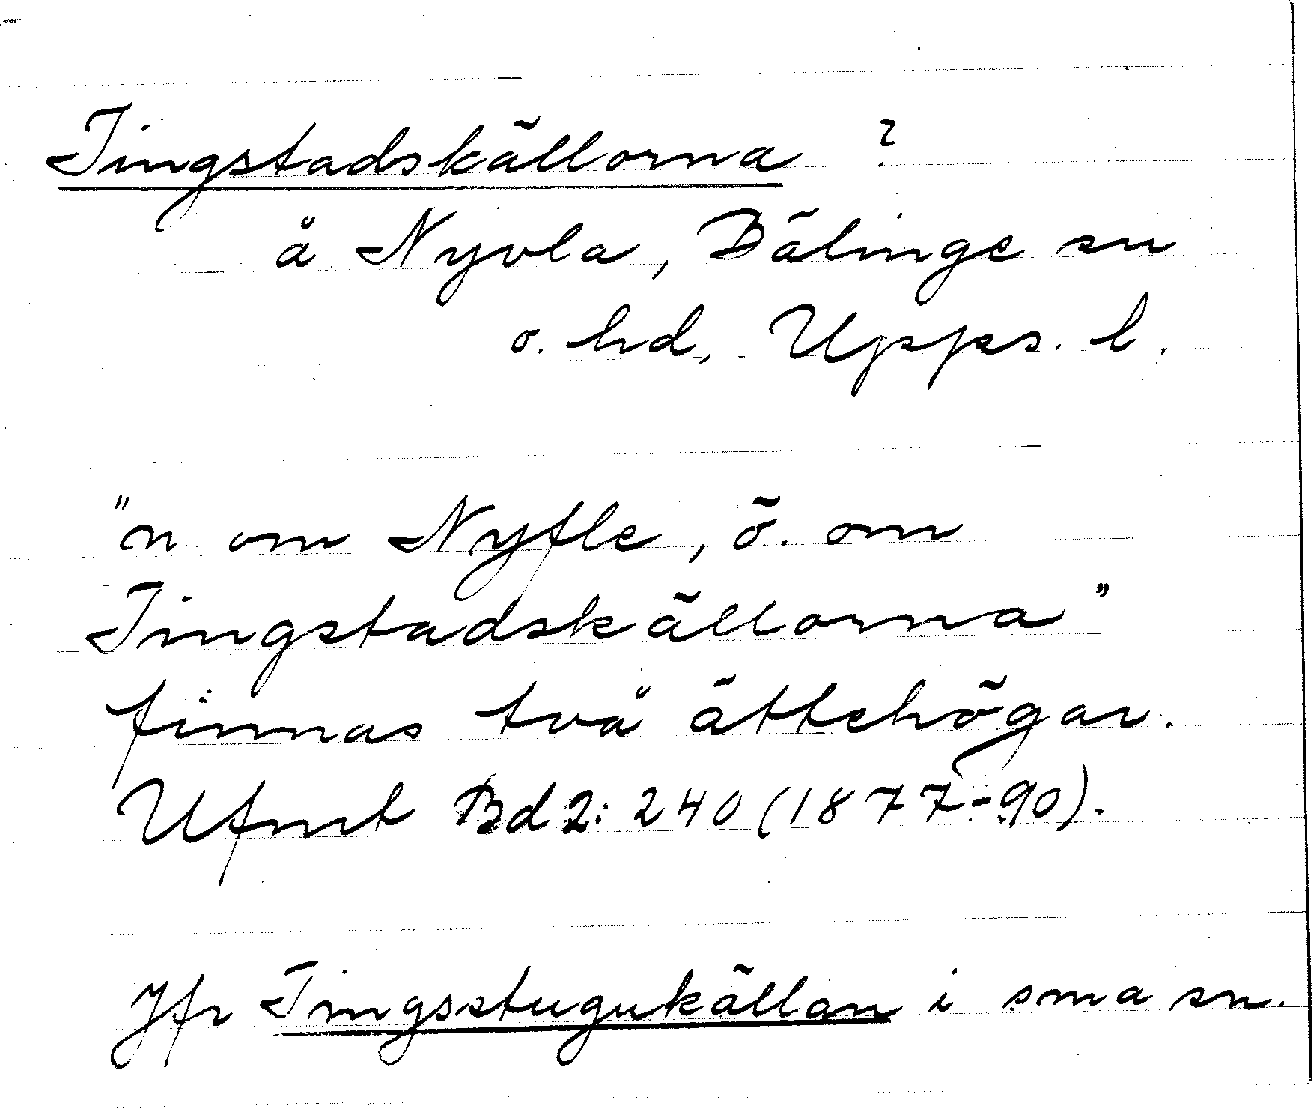 Tingstadskällorna ?
å Nyvla, Bälinge sn
o. hd, Upps. l.
"n om Nyfle, ö. om
Tingstadskällorna"
finnas två ättehögar.
Ufmt Bd 2: 240 (1877-90).
Jfr Tingsstugukällan i sma sn.